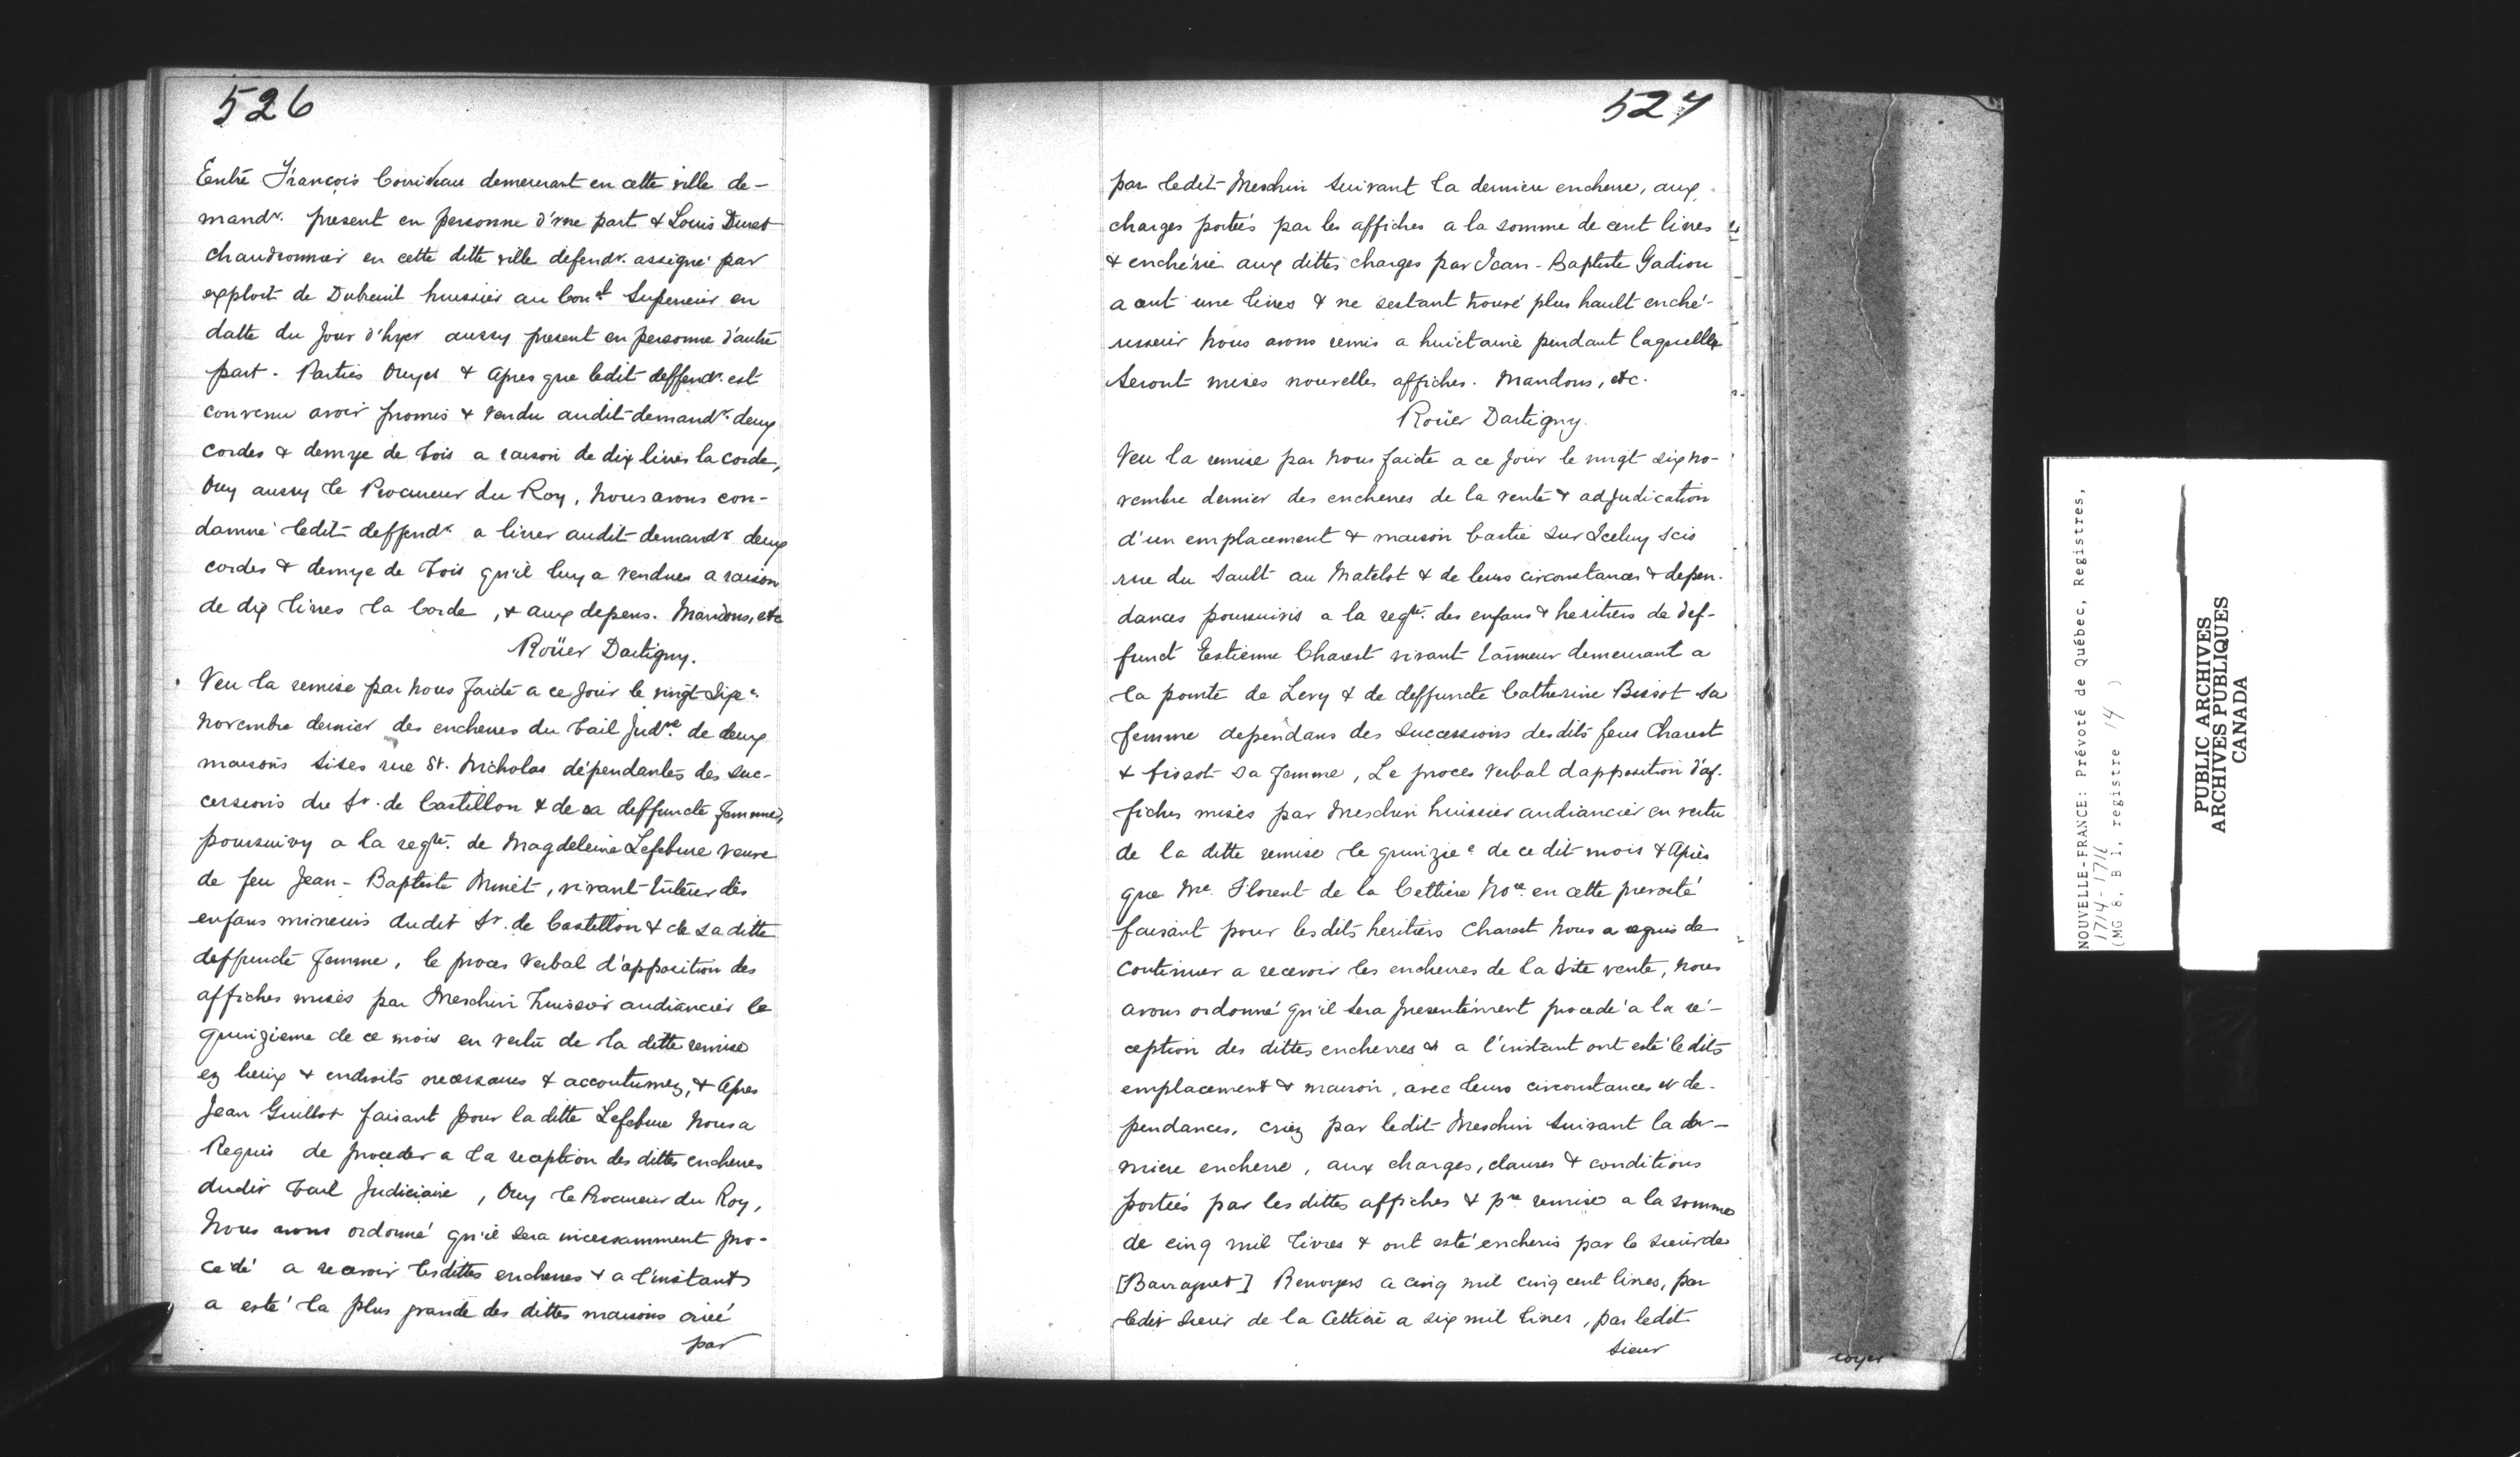 526
Entre François Corriveau demeurant en cette ville de-
mandr. present en personne d'vne part & Louis Duret
chaudronnier en cette ditte ville defendr. assigné par
exploit de Dubreuil huissier au Conel Superieur en
datte du Jour d'hyer aussy present en personne d'autre
part. Parties Ouyes & apres que ledit deffendr. est
convenu avoir promis & vendu audit demandr. deux
cordes & demye de bois a raison de dix livres la corde,
Ouy aussy le Procureur du Roy, Nous avons con-
damné ledit deffendr. a livrer audit demandr deux
cordes & demye de bois qu'il luy a vendues a raison
de dix livres la Corde, & aux depens. Mandons, etc
Roüer Dartigny.
Veu la remise par Nous faide a ce Jour le vingt Sixe.
Novembre dernier des encheres du bail Judre. de deux
maisons sises rue St. Nicholas dépendantes des suc-
cessions du Sr. de Castillon & de sa deffuncte femme,
poursuivy a la reqte. de Magdeleine Lefebvre veuve
de feu Jean-Baptiste Minet, vivant tuteur des
enfans mineurs dudit Sr. de Castillon & de sa ditte
deffuncte femme, le proces Verbal d'apposition des
affiches mises par Meschin huissier audiancier le
quinzieme de ce mois en vertu de la ditte remise
ez lieux & endroits necessaires & accoutumez, & apres
Jean Guillot faisant pour la ditte Lefebvre Nous a
Requis de proceder a la reception des dittes encheres
dudit bail Judiciaire, Ouy le Procureur du Roy,
Nous avons ordonné qu'il sera incessamment pro-
cédé a recevoir lesdittes encheres & a l'instant
a esté la plus grande des dittes maisons criée
par
527
par ledit Meschin suivant la derniere enchere, aux
charges portées par les affiches a la somme de cent livres
& enchérie aux dittes charges par Jean-Baptiste Gadiou
a cent une livres & ne sestant trouvé plus hault enché-
risseur Nous avons remis a huictaine pendant laquelle
seront mises nouvelles affiches. Mandons, etc.
Roüer Dartigny.
Veu la remise par Nous faide a ce Jour le vingt six no-
vembre dernier des encheres de la vente & adjudication
d'un emplacement & maison bastie sur Iceluy scis
rue du Sault au Matelot & de leurs circonstances & depen-
dances poursuivis a la reqte. des enfans & heritiers de def-
funct Estienne Charest vivant tanneur demeurant a
la pointe de Levy & de deffuncte Catherine Bissot sa
femme dependans des successions desdits feus Charest
& bissot sa femme, Le proces verbal dapposition d'af-
fiches mises par Meschin huissier audiancier en vertu
de la ditte remise le quinziee de ce dit mois & Après
que Me. Florent de la Cettiere Nore. en cette prevosté
faisant pour lesdits heritiers Charest Nous a requis de
continuer a recevoir les encheres de la dite vente, nous
avons ordonné qu'il sera presentement procedé a la ré-
ception des dittes encherres & a l'instant ont esté ledits
emplacement & maison, avec leurs circonstances et de-
pendances, criez par ledit Meschin suivant la der-
niere encherre, aux charges, clauses & conditions
portées par les dittes affiches & pre remise a la somme
de cinq mil livres & ont esté encheris par le sieur de
[Barragnet] Renoyers a cinq mil cinq cent livres, par
ledit sieur de la Cettiere a six mil livres, par ledit
sieur
NOUVELLE-FRANCE: Prévoté de Québec, Registres,
1714-1716
(MG 8, B 1, registre 14)
PUBLIC ARCHIVES
ARCHIVES PUBLIQUES
CANADA